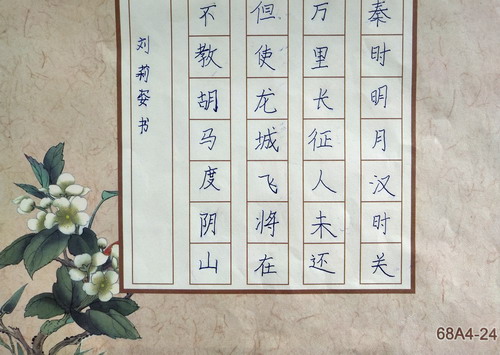 秦时明月汉时关
万里长征人未还
但使龙城飞将在
不教胡马度阴山
刘莉娑书
68A4-24